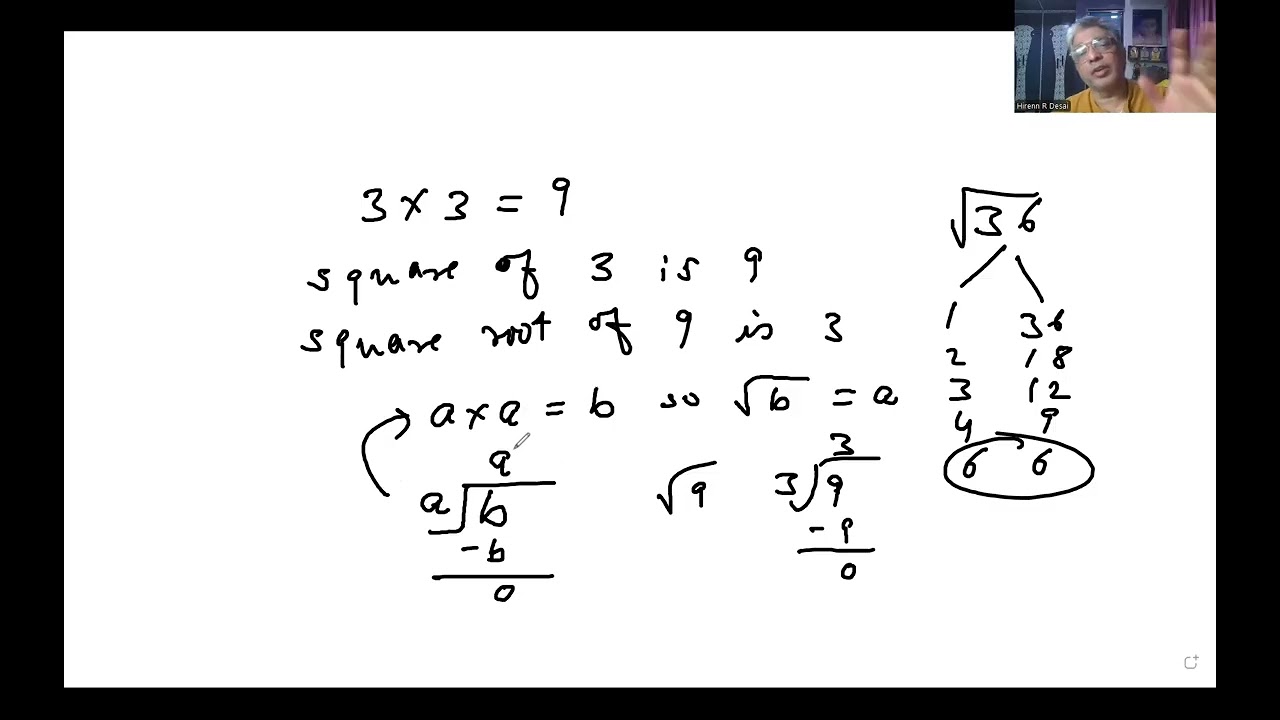 Hirenn R Desai
3 × 3 = 9
square of 3 is 9
square root of 9 is 3
a × a = b so √b = a
a
a√b
-b
0
√9
3
3√9
-9
0
√36
1 36
2 18
3 12
4 9
6 6